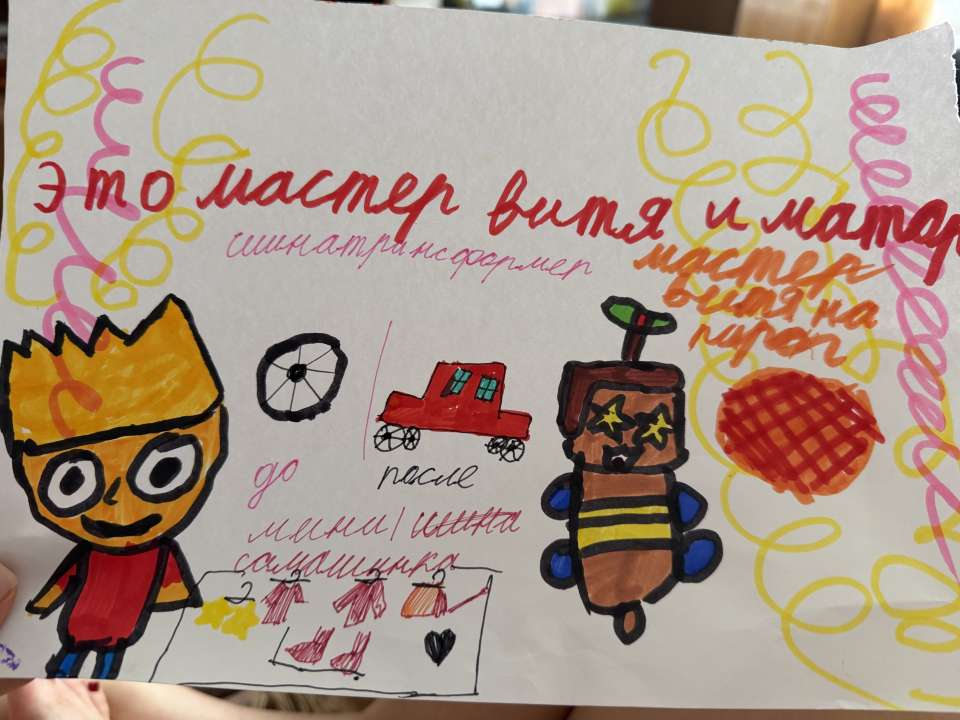 это мастер витя и матор
шинатрансформер
мастер
витя на
пирог
до
после
мини
самашинка
2
2
2
2